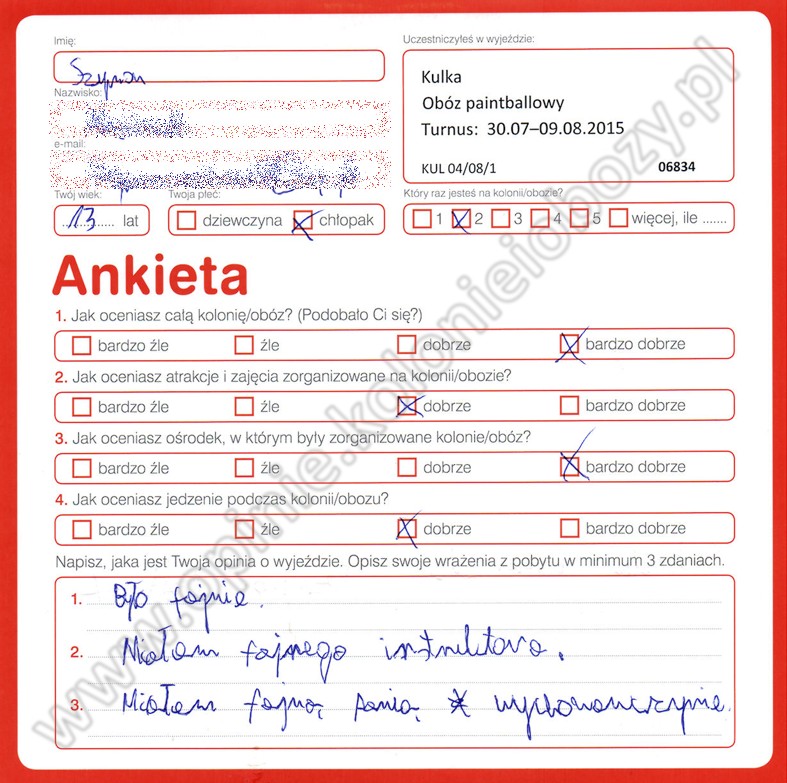 Imię:
Szymon
Nazwisko:
e-mail:
Twój wiek:
13 lat
Twoja płeć:
dziewczyna chłopak
Uczestniczyłeś w wyjeździe:
Kulka
Obóz paintballowy
Turnus: 30.07–09.08.2015
KUL 04/08/1 06834
Który raz jesteś na kolonii/obozie?
1 2 3 4 5 więcej, ile .......
Ankieta
1. Jak oceniasz całą kolonię/obóz? (Podobało Ci się?)
bardzo źle źle dobrze bardzo dobrze
2. Jak oceniasz atrakcje i zajęcia zorganizowane na kolonii/obozie?
bardzo źle źle dobrze bardzo dobrze
3. Jak oceniasz ośrodek, w którym były zorganizowane kolonie/obóz?
bardzo źle źle dobrze bardzo dobrze
4. Jak oceniasz jedzenie podczas kolonii/obozu?
bardzo źle źle dobrze bardzo dobrze
Napisz, jaka jest Twoja opinia o wyjeździe. Opisz swoje wrażenia z pobytu w minimum 3 zdaniach.
1. Było fajnie.
2. Miałem fajnego instruktora.
3. Miałem fajną panią wychowawczynie.
www.opinie.kolonieiobozy.pl